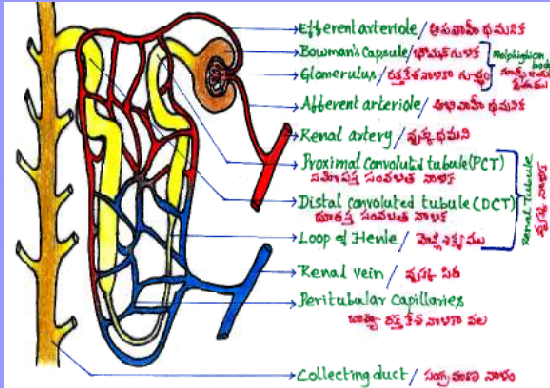 Efferent arteriole / అపవాహీ ధమనిక
Bowman's Capsule / భౌమన్ గుళిక
Glomerulus / రక్తకేశనాళికా గుచ్ఛం
Malphighian body
Afferent arteriole / అభివాహీ ధమనిక
Renal artery / వృక్క ధమని
Proximal convoluted tubule (PCT)
సమీపస్థ సంవళిత నాళిక
Distal convoluted tubule (DCT)
దూరస్థ సంవళిత నాళిక
Renal Tubule
వృక్క నాళిక
Loop of Henle / హెన్లీ శిక్యము
Renal vein / వృక్క సిర
Peritubular Capillaries
బాహ్య రక్త కేశ నాళికా వల
Collecting duct / సంగ్రహణ నాళం